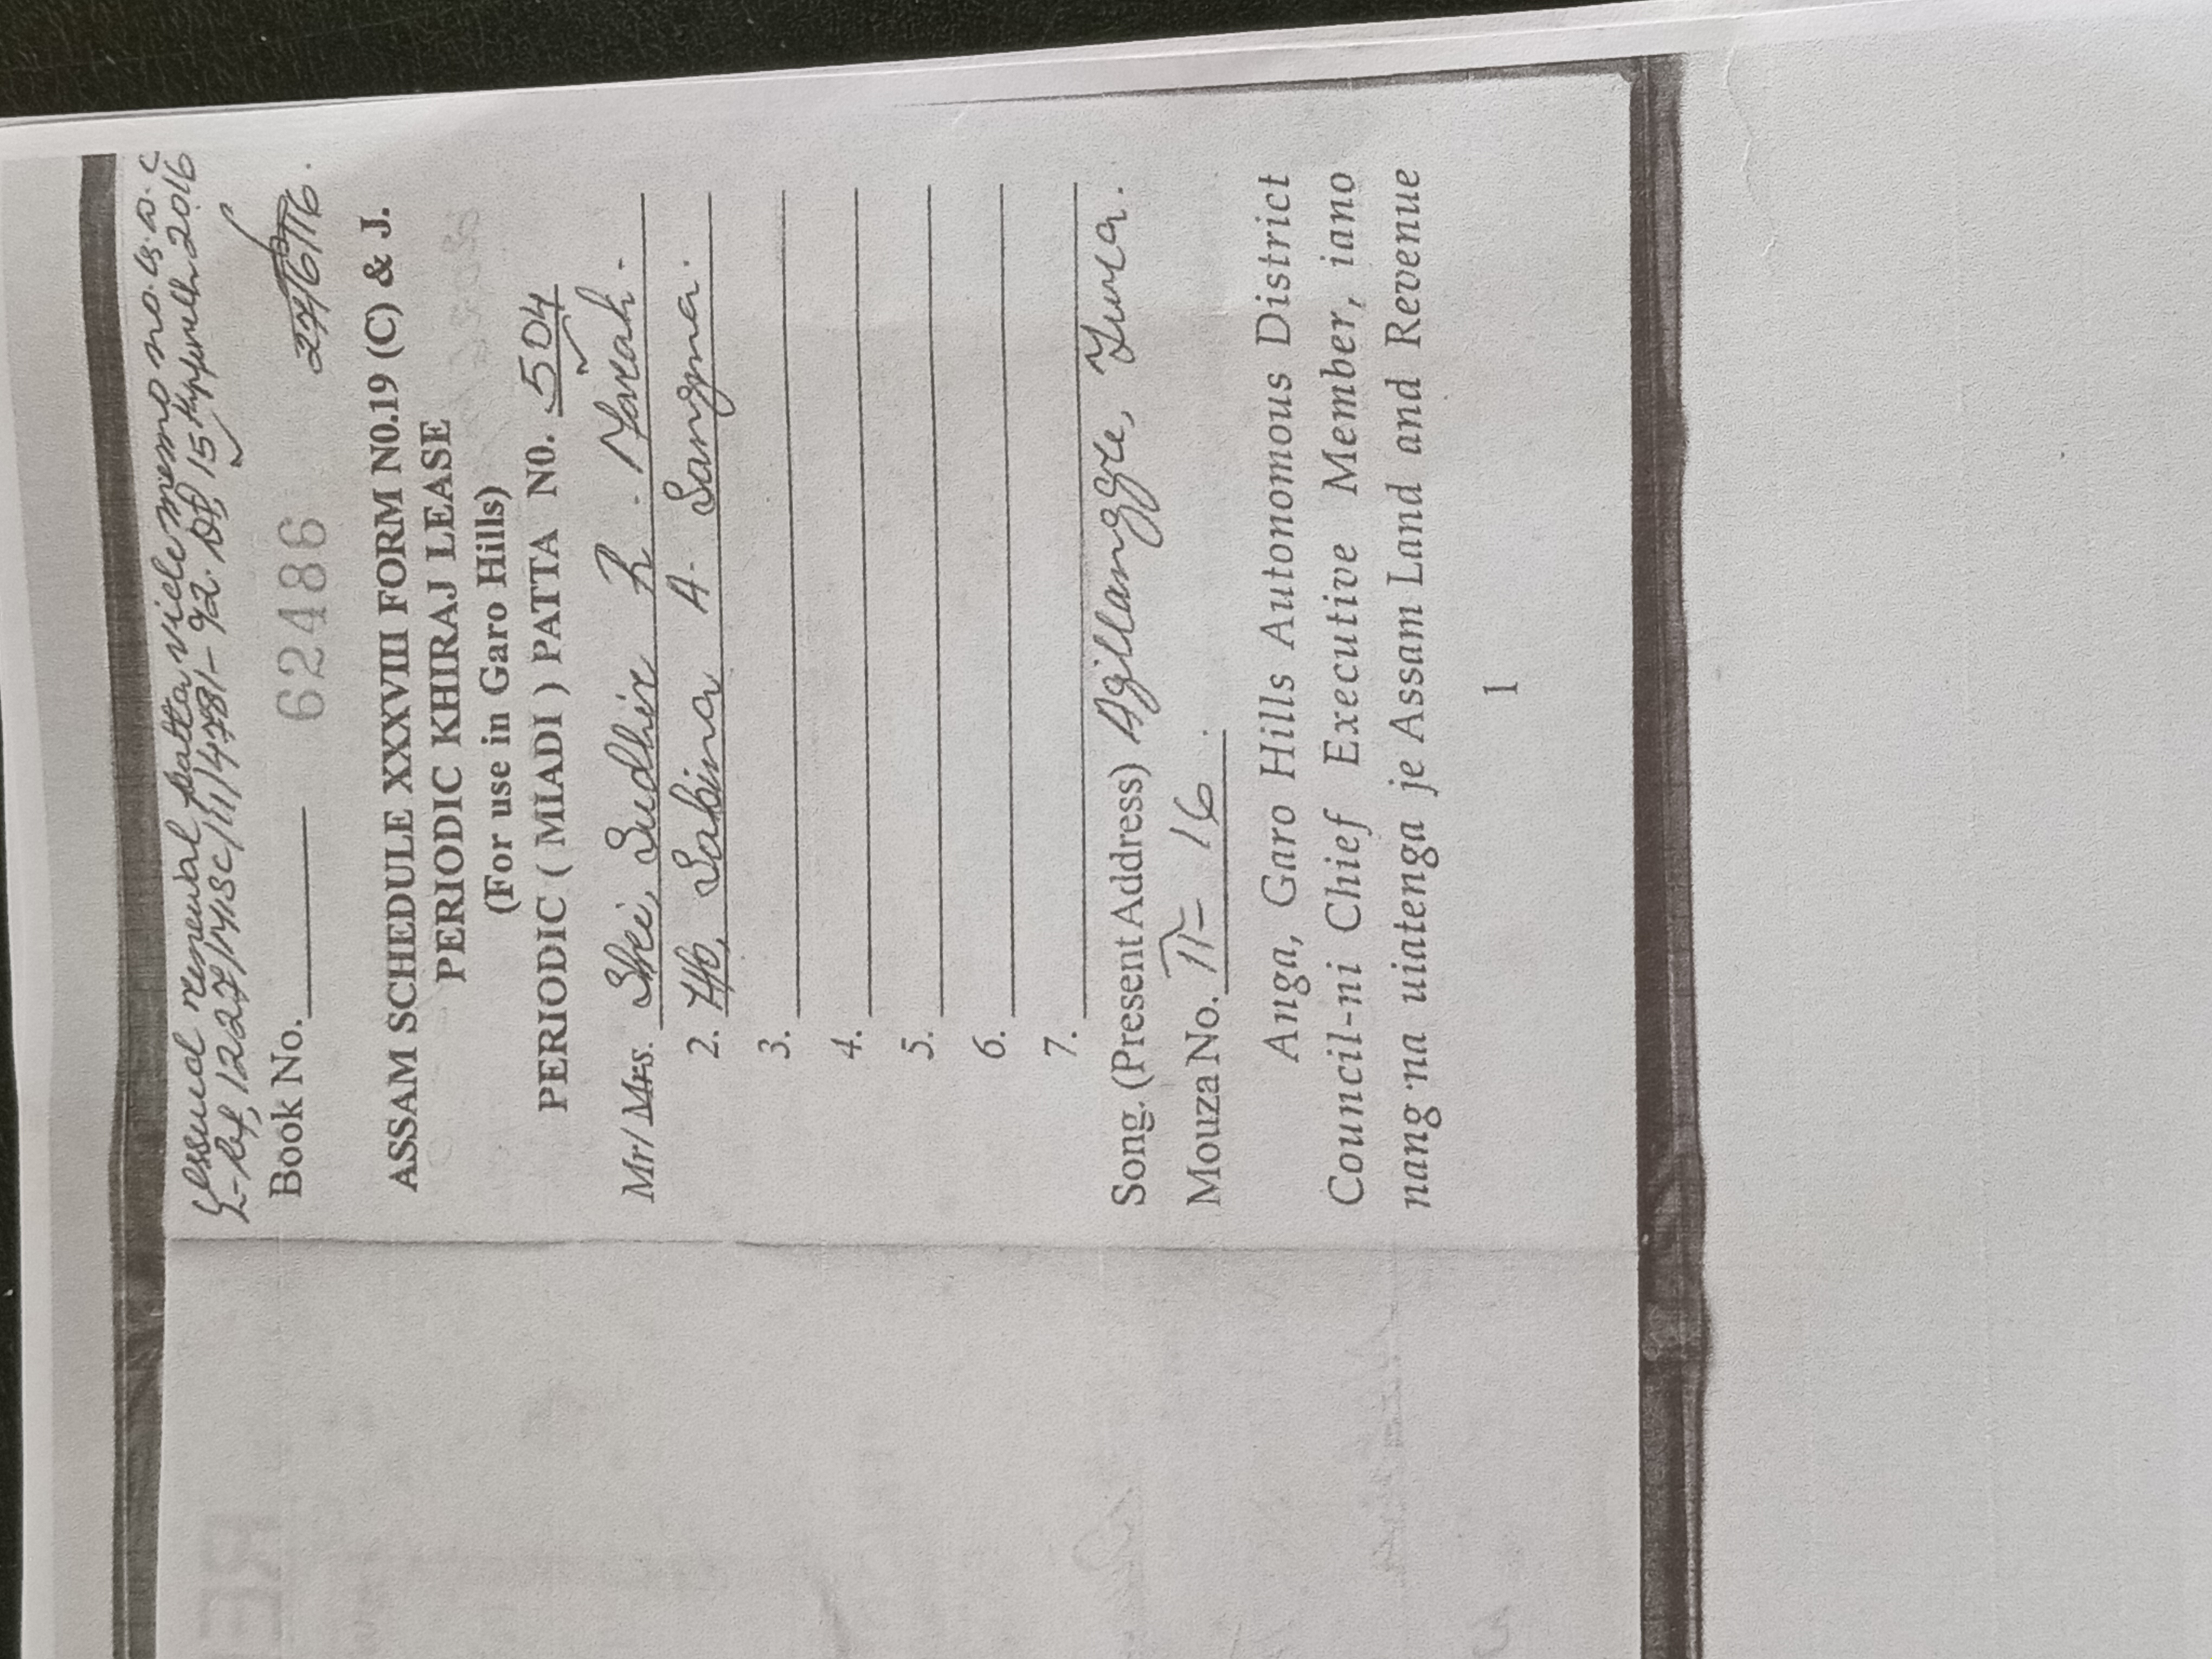 Issued renewal patta vide memo no. G.D.C
Book No.
62486
27/6/16.
ASSAM SCHEDULE XXXVIII FORM N0.19 (C) & J.
PERIODIC KHIRAJ LEASE
(For use in Garo Hills)
PERIODIC ( MIADI ) PATTA N0. 504
Mr/ Mrs. Shri, Sudhir R. Marak.
2. Sabina A. Sangma.
3.
4.
5.
6.
7.
Song. (Present Address) Agillanggre, Tura.
Mouza No. II-16.
Anga, Garo Hills Autonomous District
Council-ni Chief Executive Member, iano
nang·na uiatenga je Assam Land and Revenue
1